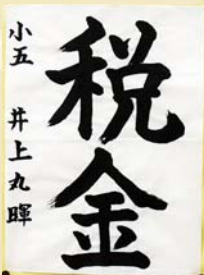 税金
小五 井上丸暉